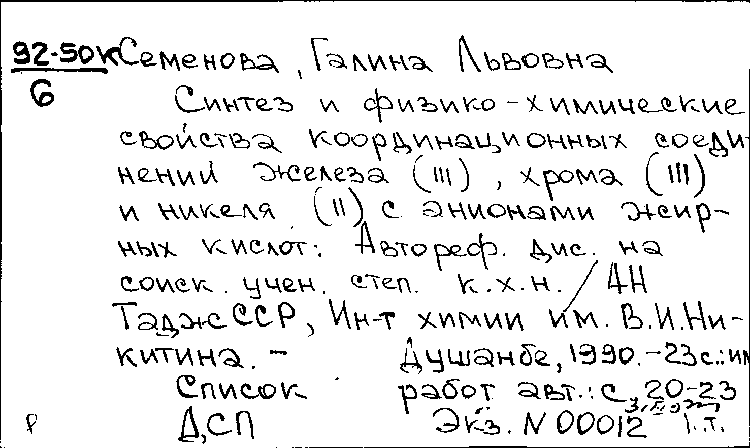 92-50К Семенова, Галина Львовна
6
Синтез и физико-химические
свойства координационных соеди-
нений железа (III), хрома (III)
и никеля (II) с анионами жир-
ных кислот: Автореф. дис. на
соиск. учен. степ. к.х.н. / АН
ТаджССР, Ин-т химии им. В.И.Ни-
китина. - Душанбе, 1990. - 23 с.: ил
Список работ авт.: с. 20-23
ДСП Экз. N 00012 1.т.